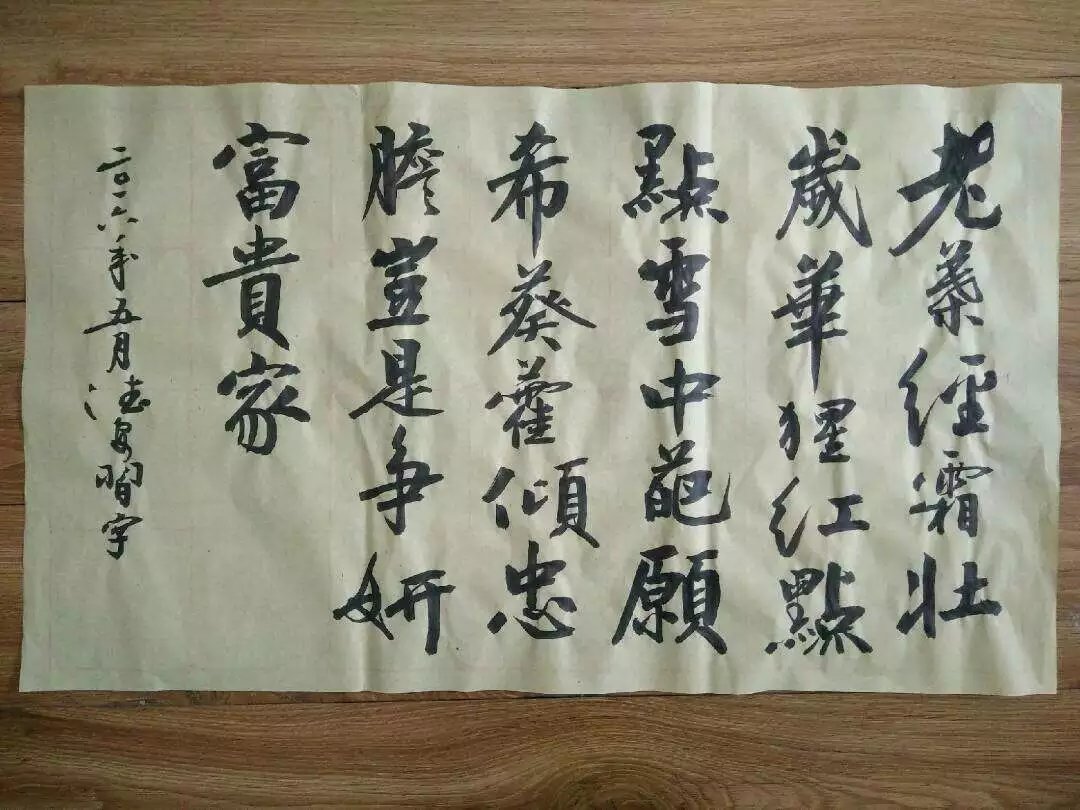 老葉經霜壯
歲華猩紅點
點雪中葩願
希葵藿傾忠
膽豈是争妍
富貴家
二〇一六年五月